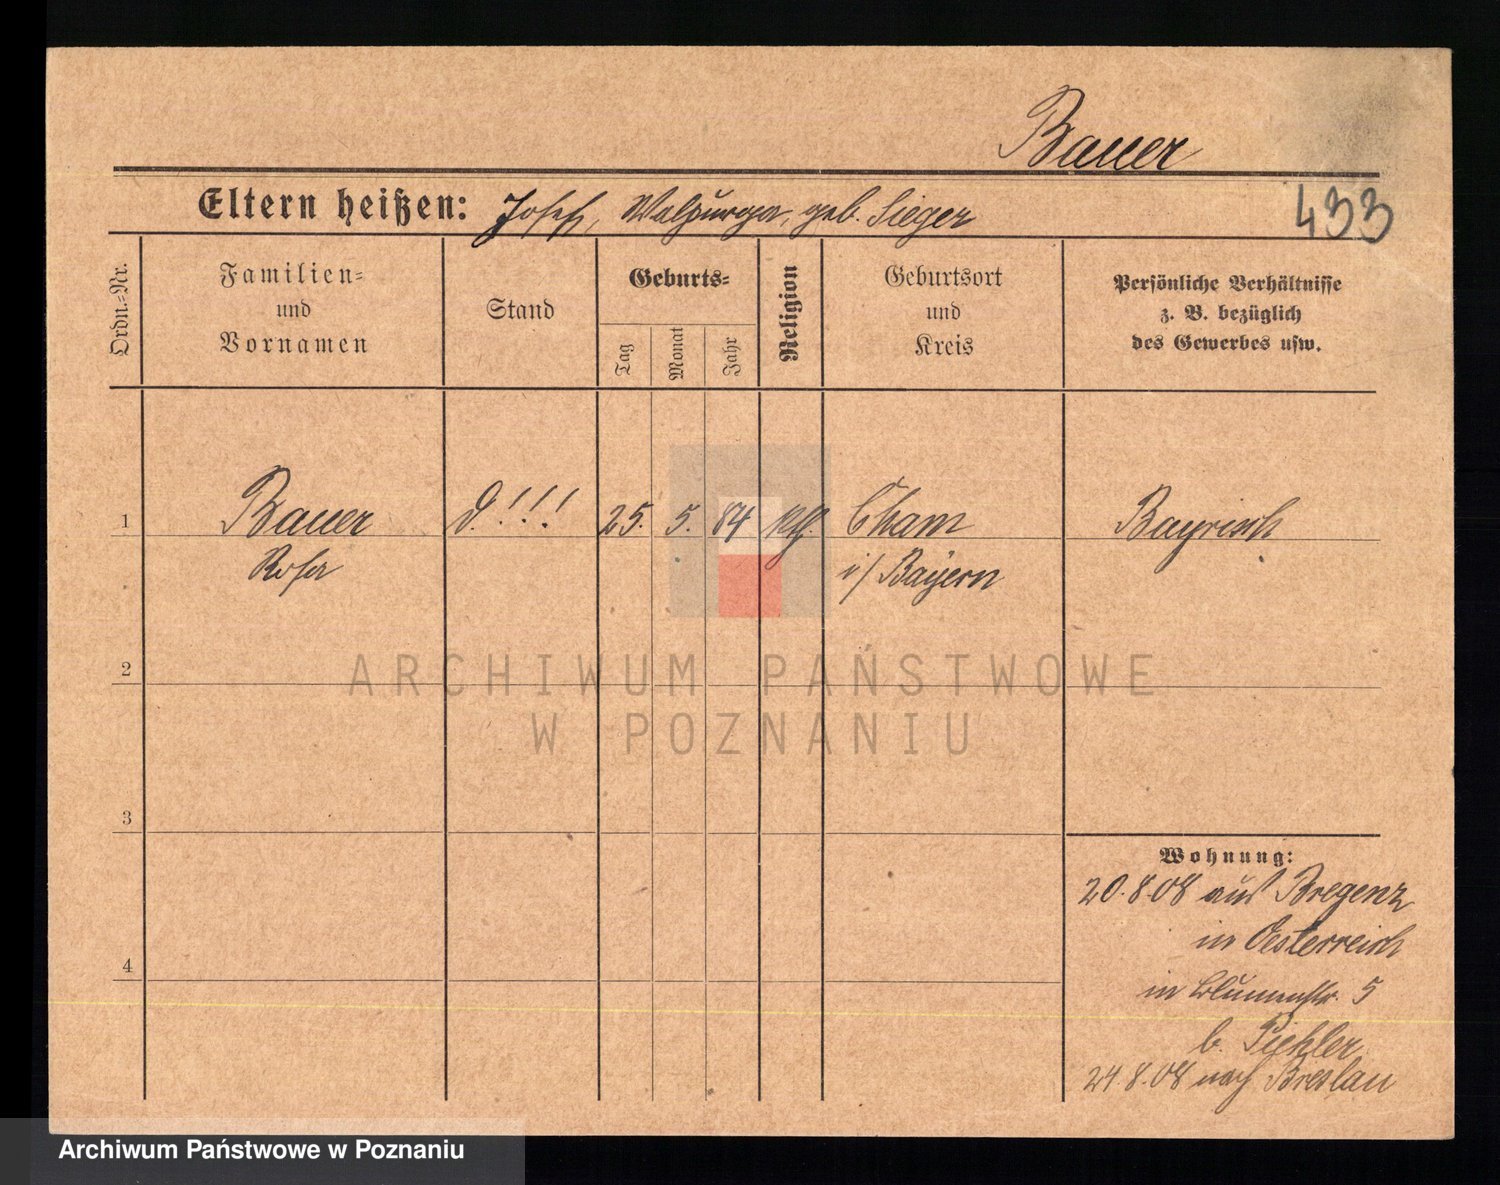 Bauer
433
Eltern heißen: Josef, Walpurga, geb. Sieger
Ordn.=Nr.
Familien=
und
Vornamen
Stand
Geburts=
Tag
Monat
Jahr
Religion
Geburtsort
und
Kreis
Persönliche Verhältnisse
z. B. bezüglich
des Gewerbes usw.
1 Bauer D!!! 25. 5. 84 kth. Cham Bayrisch
Rosa i/ Bayern
2
3
4
Wohnung:
20.8.08 aus Bregenz
in Oesterreich
in Blumenstr. 5
b. Piehler
24.8.08 nach Breslau
ARCHIWUM PAŃSTWOWE
W POZNANIU
Archiwum Państwowe w Poznaniu